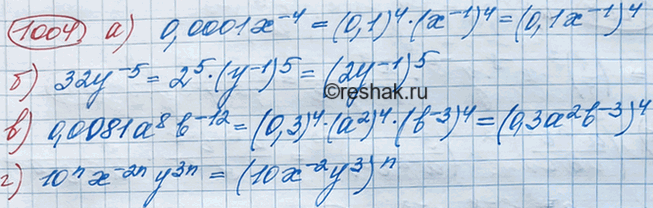 1004 а) 0,0001x⁻⁴ = (0,1)⁴·(x⁻¹)⁴ = (0,1x⁻¹)⁴
©reshak.ru
б) 32y⁻⁵ = 2⁵·(y⁻¹)⁵ = (2y⁻¹)⁵
в) 0,0081a⁸b⁻¹² = (0,3)⁴·(a²)⁴·(b⁻³)⁴ = (0,3a²b⁻³)⁴
г) 10ⁿx⁻²ⁿy³ⁿ = (10x⁻²y³)ⁿ